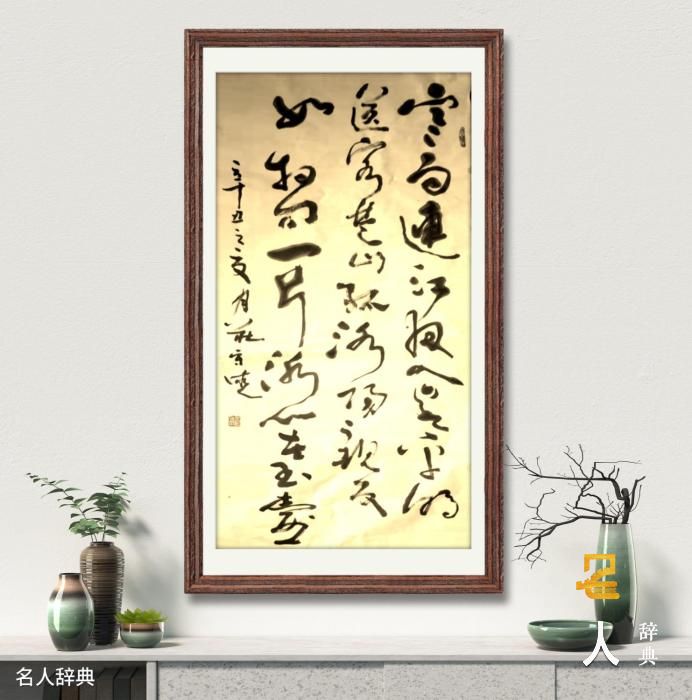 寒雨連江夜入吴平明
送客楚山孤洛陽親友
如相問一片冰心在玉壺
十五之夏月
名人辞典
名人
辞典